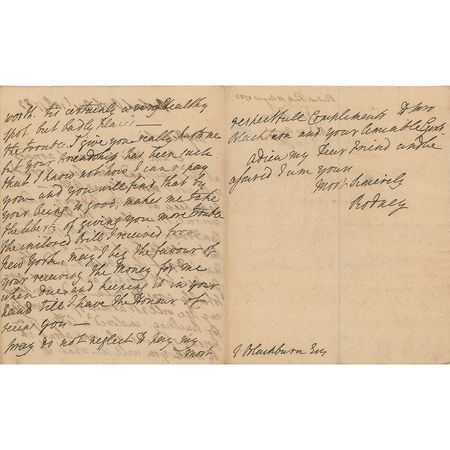 worth. tis certainly a very healthy
spot. but badly
the trouble I give you really
but your friendship has been such
that I know not how I can repay
you and you will find that by
your being so good, makes me take
the liberty of giving you more trouble
the inclosed Bill I received from
New York, may I beg the favour of
your receiving the Money for me
when due and keeping it in your
hand till I have the Honour of
seeing you —
pray do not neglect to pay my
most
respectfull Compliments to Mrs
Blackburn and your amiable
Adieu my Dear Friend and be
assured I am yours
Most Sincerely
Rodney
J Blackburn Esq